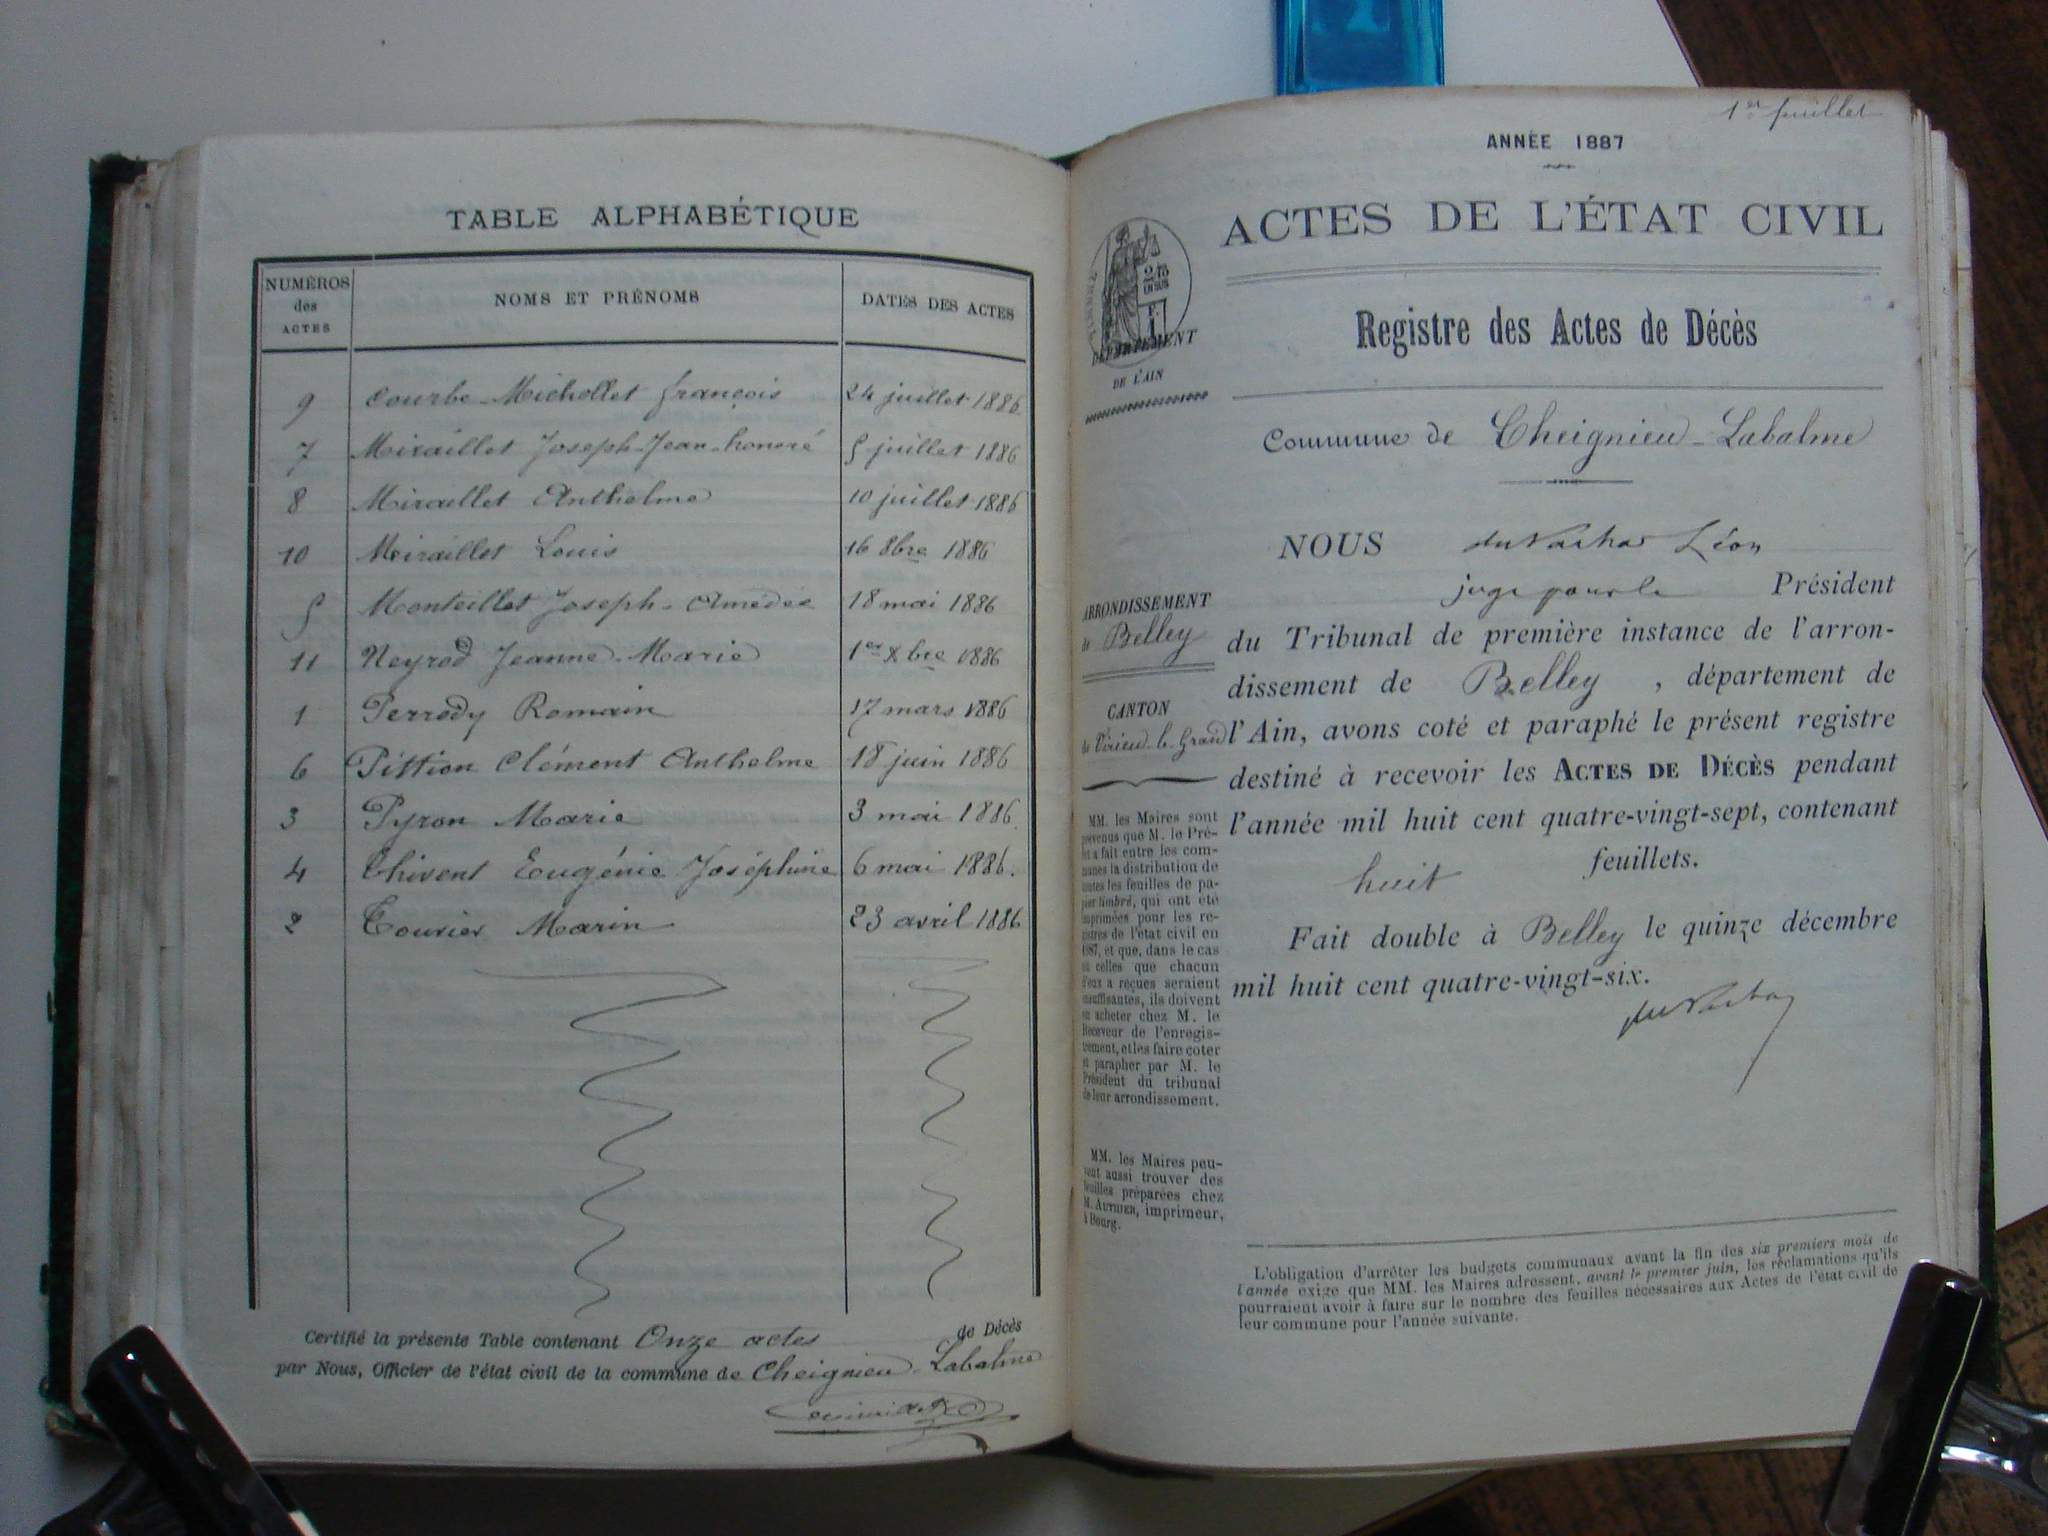 TABLE ALPHABÉTIQUE
NUMÉROS des ACTES NOMS ET PRÉNOMS DATES DES ACTES
9 Courbe-Michollet françois 24 juillet 1886
7 Miraillet Joseph-Jean-honoré 5 juillet 1886
8 Miraillet Anthelme 10 juillet 1886
10 Miraillet Louis 16 8bre 1886
5 Monteillet Joseph-Amédée 18 mai 1886
11 Neyrod Jeanne-Marie 1er Xbre 1886
1 Perrody Romain 17 mars 1886
6 Pittion Clément Anthelme 18 juin 1886
3 Pyron Marie 3 mai 1886
4 Thivent Eugénie Joséphine 6 mai 1886.
2 Tourier Marin 23 avril 1886
Certifié la présente Table contenant Onze actes de Décès
par Nous, Officier de l'état civil de la commune de Cheignieu-Labalme
1er feuillet
ANNÉE 1887
ACTES DE L'ÉTAT CIVIL
Registre des Actes de Décès
DÉPARTEMENT
DE L'AIN
Commune de Cheignieu-Labalme
NOUS Léon
juge pour le Président
du Tribunal de première instance de l'arron-
dissement de Belley, département de
l'Ain, avons coté et paraphé le présent registre
destiné à recevoir les ACTES DE DÉCÈS pendant
l'année mil huit cent quatre-vingt-sept, contenant
huit feuillets.
Fait double à Belley le quinze décembre
mil huit cent quatre-vingt-six.
ARRONDISSEMENT
de Belley
CANTON
de Virieu-le-Grand
MM. les Maires sont
prévenus que M. le Pré-
fet a fait entre les com-
munes la distribution de
toutes les feuilles de pa-
pier timbré, qui ont été
imprimées pour les re-
gistres de l'état civil en
1887, et que, dans le cas
où celles que chacun
d'eux a reçues seraient
insuffisantes, ils doivent
en acheter chez M. le
Receveur de l'enregis-
trement, et les faire coter
et parapher par M. le
Président du tribunal
de leur arrondissement.
MM. les Maires peu-
vent aussi trouver des
feuilles préparées chez
M. AUTHIER, imprimeur,
à Bourg.
L'obligation d'arrêter les budgets communaux avant la fin des six premiers mois de
l'année exige que MM. les Maires adressent, avant le premier juin, les réclamations qu'ils
pourraient avoir à faire sur le nombre des feuilles nécessaires aux Actes de l'état civil de
leur commune pour l'année suivante.